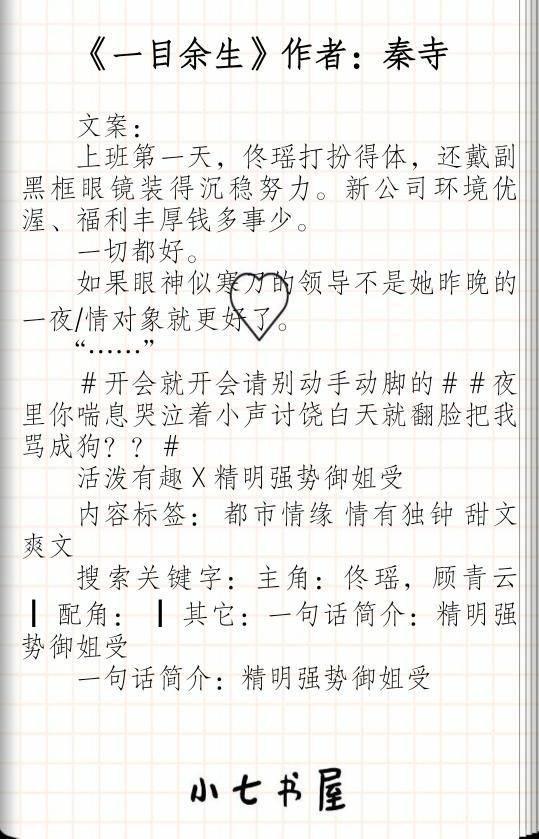 《一目余生》作者：秦寺
文案：
上班第一天，佟瑶打扮得体，还戴副
黑框眼镜装得沉稳努力。新公司环境优
渥、福利丰厚钱多事少。
一切都好。
如果眼神似寒刀的领导不是她昨晚的
一夜/情对象就更好了。
“……”
＃开会就开会请别动手动脚的＃＃夜
里你喘息哭泣着小声讨饶白天就翻脸把我
骂成狗？？＃
活泼有趣X精明强势御姐受
内容标签： 都市情缘 情有独钟 甜文
爽文
搜索关键字：主角：佟瑶，顾青云
┃ 配角： ┃ 其它：一句话简介：精明强
势御姐受
一句话简介：精明强势御姐受
小七书屋